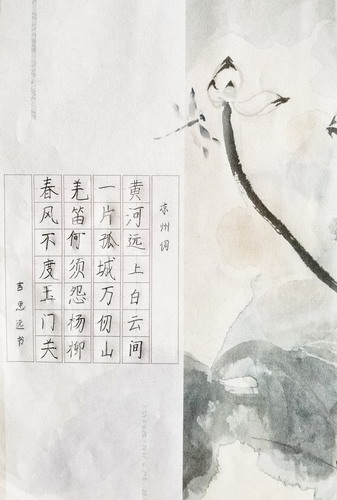 凉州词
黄河远上白云间
一片孤城万仞山
羌笛何须怨杨柳
春风不度玉门关
言思远书